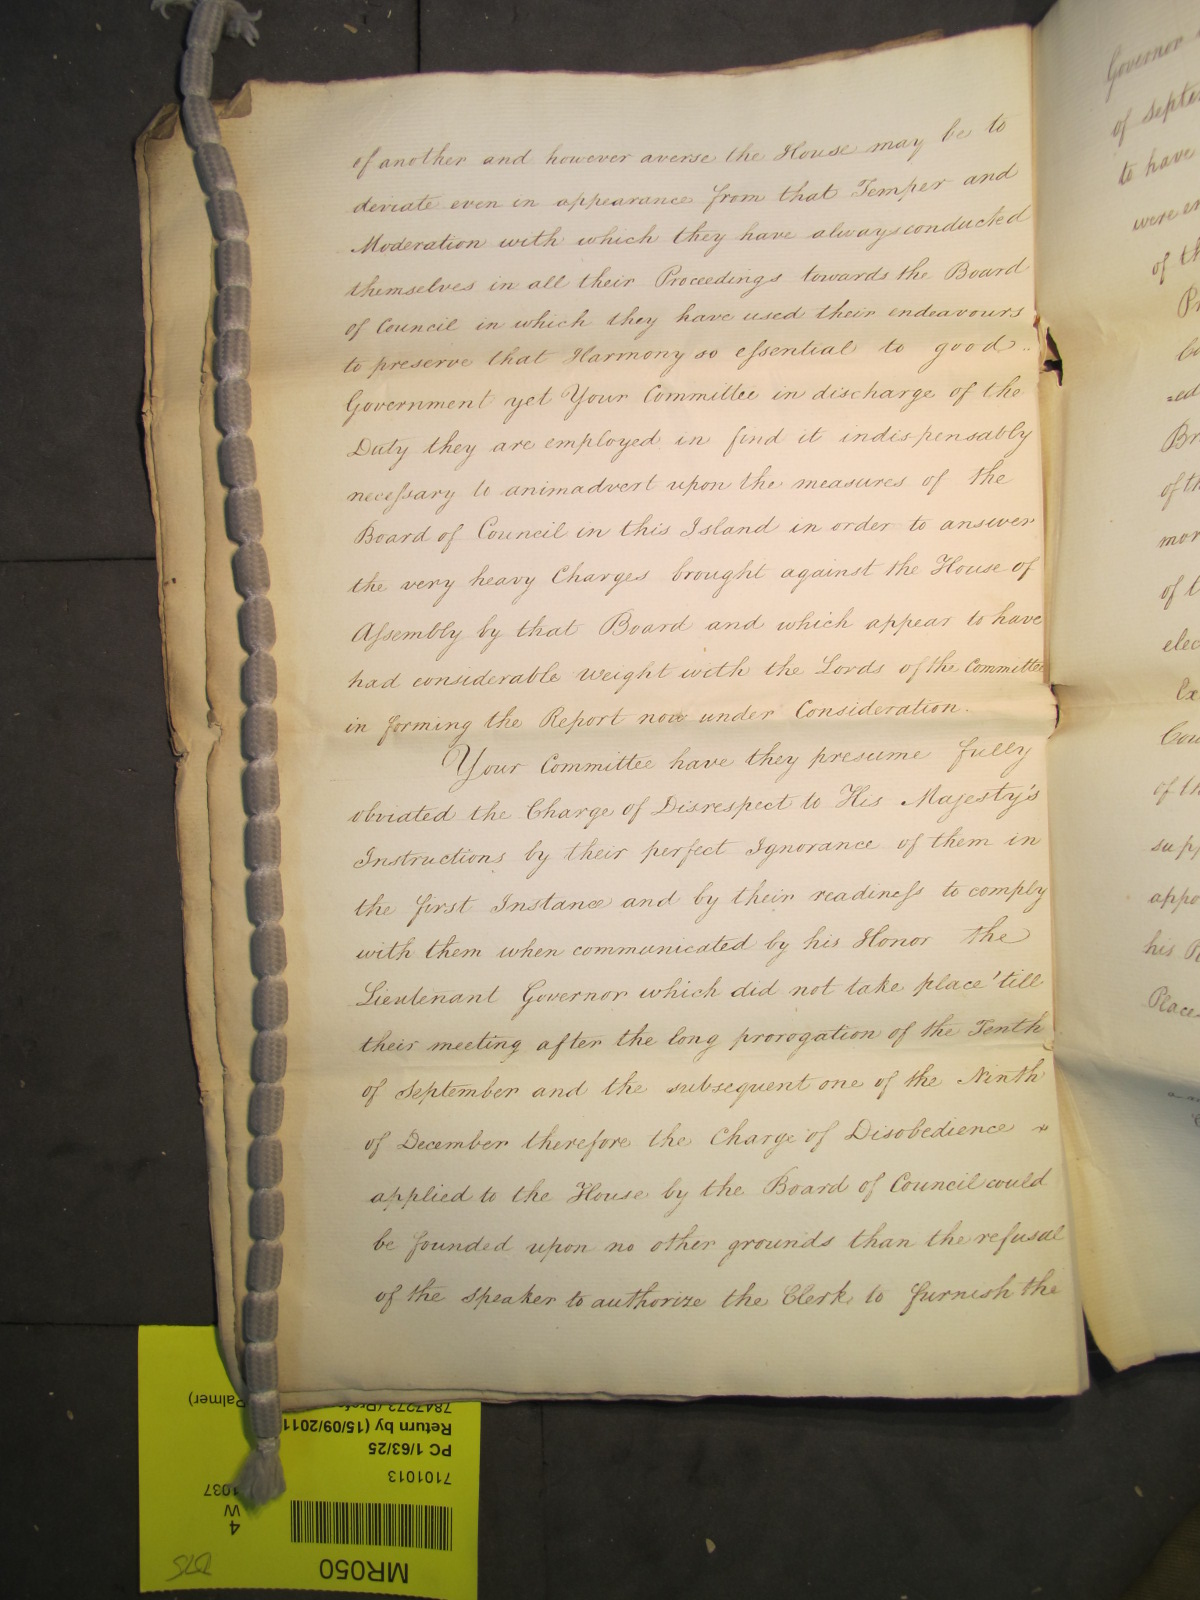 of another and however averse the House may be to
deviate even in appearance from that Temper and
Moderation with which they have always conducted
themselves in all their Proceedings towards the Board
of Council in which they have used their endeavours
to preserve that Harmony so essential to good
Government yet Your Committee in discharge of the
Duty they are employed in find it indispensably
necessary to animadvert upon the measures of the
Board of Council in this Island in order to answer
the very heavy Charges brought against the House of
Assembly by that Board and which appear to have
had considerable weight with the Lords of the Committee
in forming the Report now under Consideration.
Your Committee have they presume fully
obviated the Charge of Disrespect to His Majesty's
Instructions by their perfect Ignorance of them in
the first Instance and by their readiness to comply
with them when communicated by his Honor the
Lieutenant Governor which did not take place 'till
their meeting after the long prorogation of the Tenth
of September and the subsequent one of the Ninth
of December therefore the Charge of Disobedience
applied to the House by the Board of Council could
be founded upon no other grounds than the refusal
of the Speaker to authorize the Clerk to furnish the
Governor
of Septe
to have
were en
of th
Pr
=ed
Br
of th
mor
of t
elec
Ex
Cou
of th
supp
appo
his R
Place
MR050
4
W
1037
7101013
PC 1/63/25
Return by (15/09/2011
7847272 (Profe
Palmer)